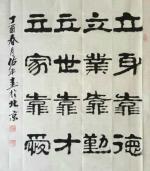 立身靠德
立業靠勤
立世靠才
立家靠
丁酉春月 年書於北京